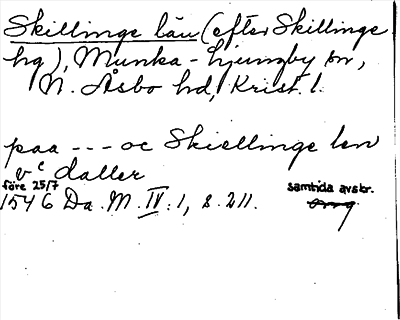 Skillinge län (efter Skillinge
hg), Munka-Ljungby sn,
N. Åsbo hd, Krist. l.
paa --- oc Skiellinge len
vᶜ daller
före 25/7
1546 Da. M. IV:1, s. 211.
samtida avskr.